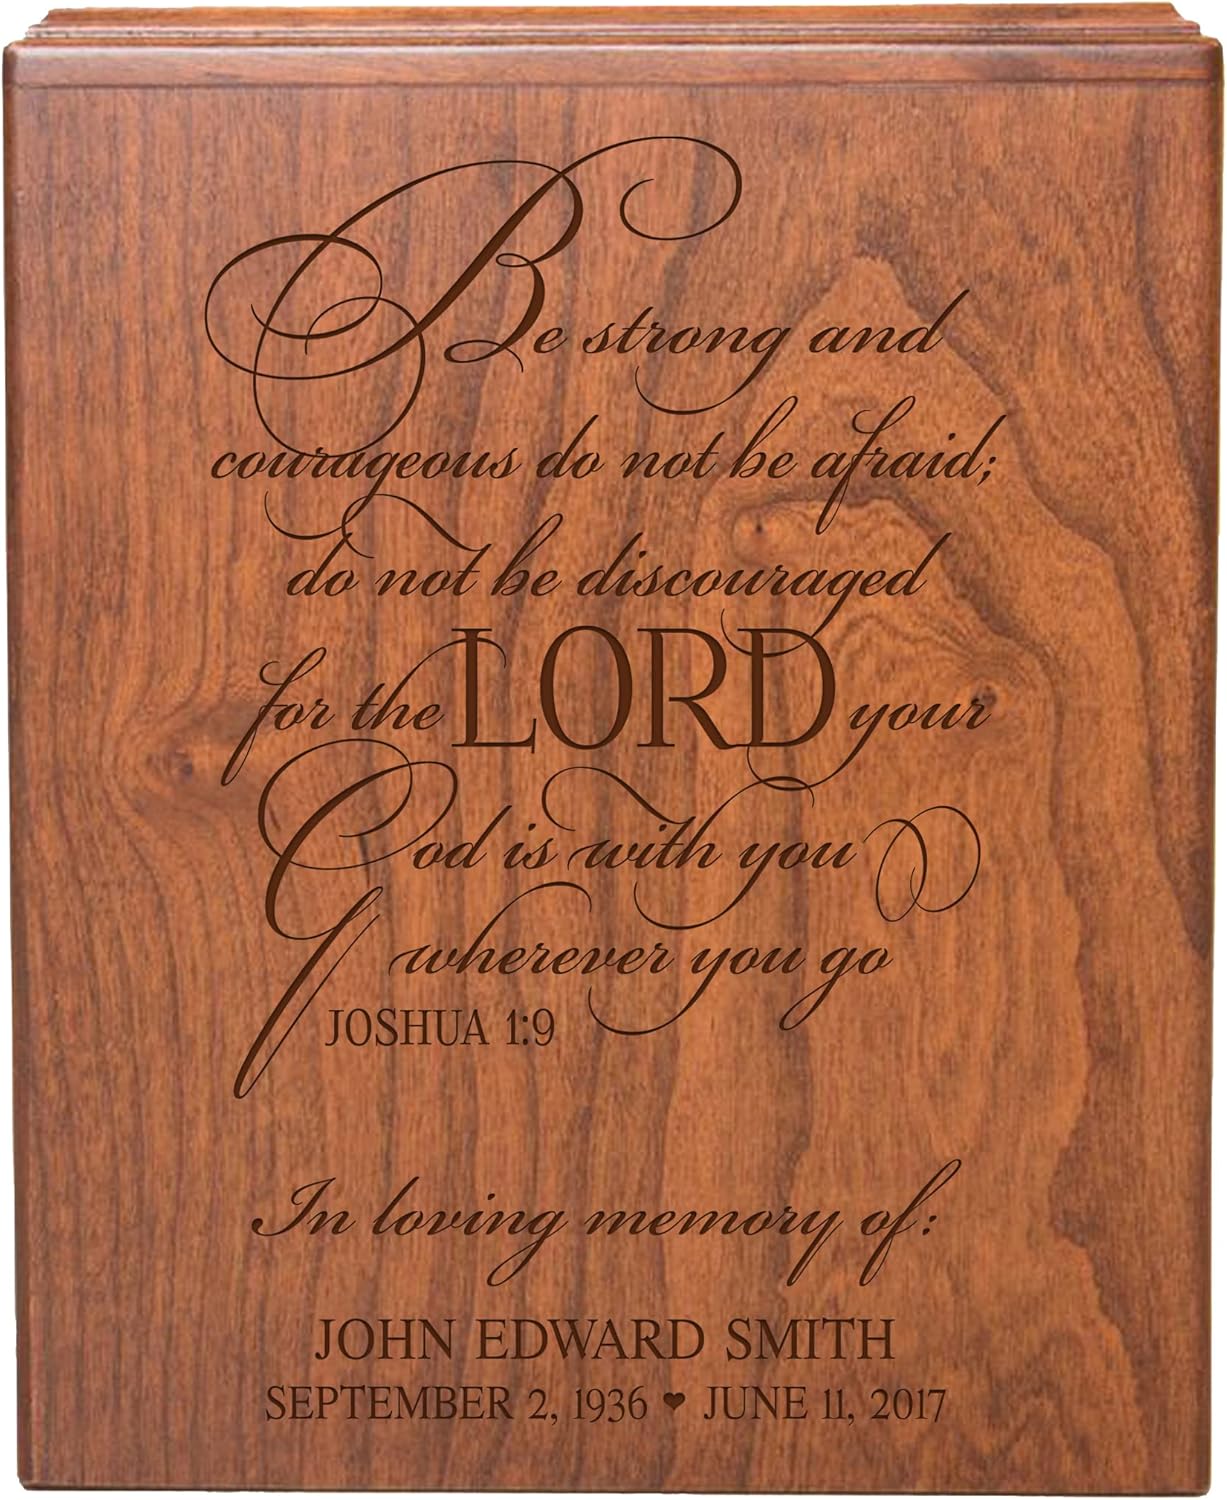 Be strong and
courageous do not be afraid;
do not be discouraged
for the LORD your
God is with you
wherever you go
JOSHUA 1:9
In loving memory of:
JOHN EDWARD SMITH
SEPTEMBER 2, 1936 ♥ JUNE 11, 2017